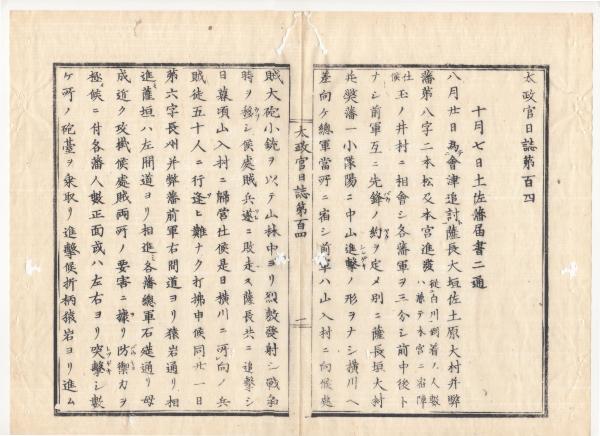 太政官日誌第百四
十月七日土佐藩届書二通
八月廿日爲會津追討薩長大垣佐土原大村并弊
藩第八字二本松及本宮進發從白川到着ノ人數ハ藤テ本宮ニ宿陣
仕候玉ノ井村ニ相會シ各藩軍ヲ三分シ前中後ト
ナシ前軍互ニ先鋒ノ約ヲ定メ別ニ薩長垣大村
共弊藩一小隊陽ニ中山進擊ノ形ヲナシ横川ヘ
差向ケ總軍當所ニ宿シ前軍ハ山入村ニ向候處
太政官日誌第百四
一
賊大砲小銃ヲ以テ山林中ヨリ烈敷發射シ戰爭
時ヲ移シ候處賊兵遂ニ敗走ス薩長共ニ追擊シ
日暮頃山入村ニ歸營仕候是日横川ニ所向ノ兵
賊徒五十人ニ行逢ヒ難ナク打拂申候同廿一日
第六字長州并弊藩前軍右間道ヨリ猿岩通リ相
進薩垣ハ左間道ヨリ相進各藩總軍石莚通リ母
成近ク攻機候處賊兩所ノ要害ニ據リ防禦力ヲ
極候ニ付各藩人數正面或ハ左右ヨリ突擊シ數
ケ所ノ砲臺ヲ乘取リ進擊候折柄猿岩ヨリ進ム